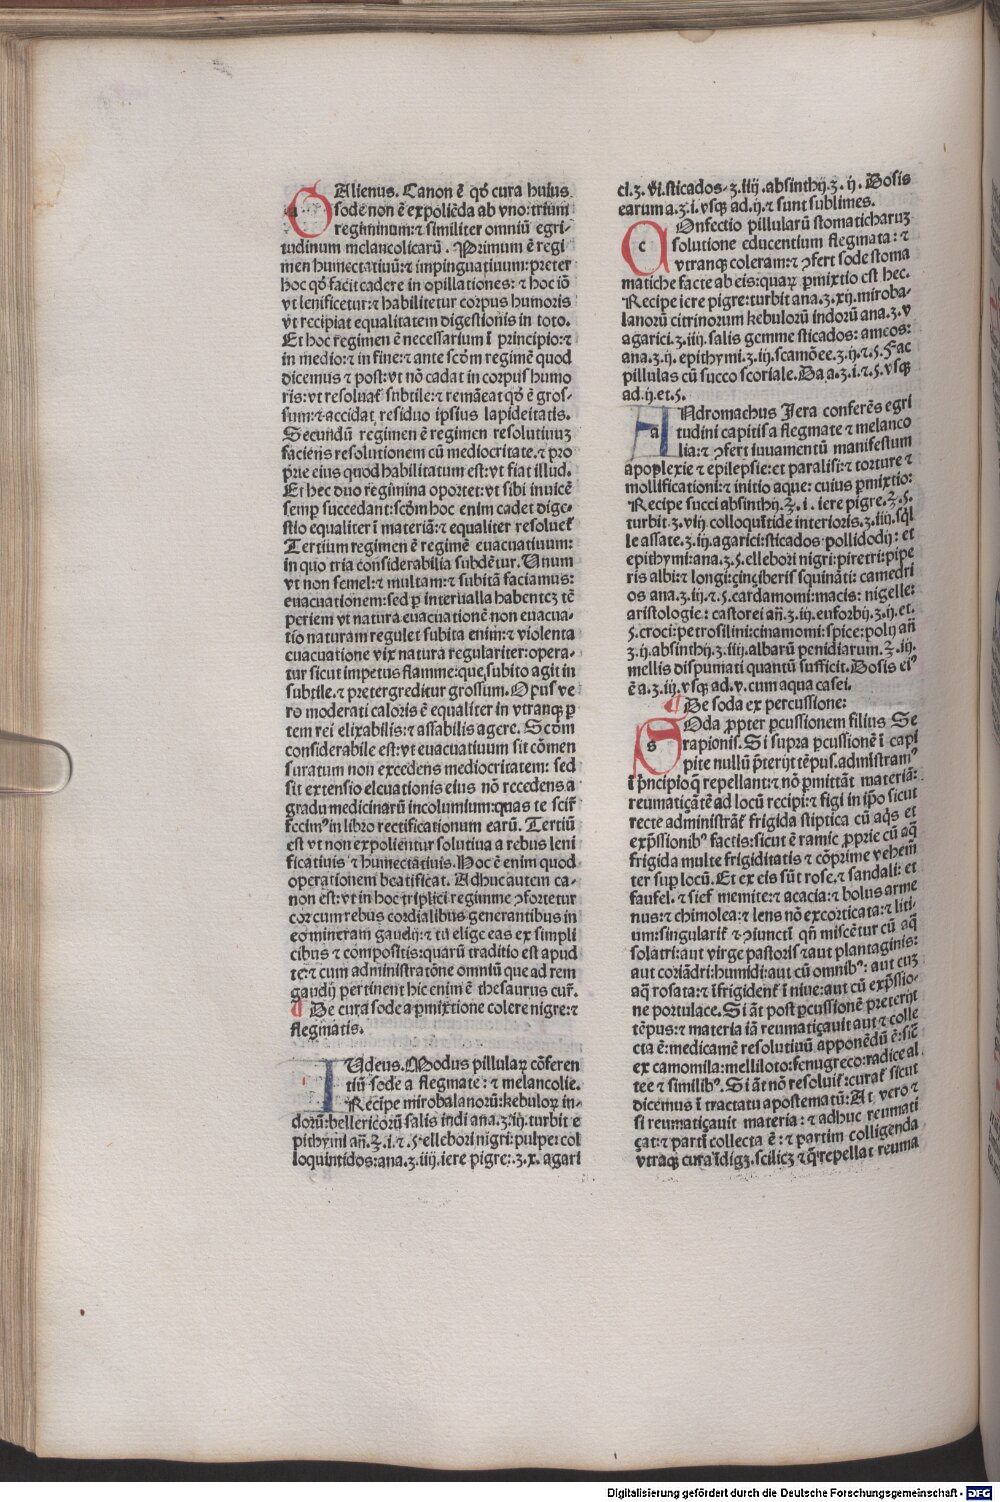 GAlienus. Canon ē qď cura huius
sode non ē expoliēda ab vno: trium
regiminum: ⁊ similiter omniū egri-
tudinum melancolicarū. Primum ē regi
men humectatiuū: ⁊ impinguatiuum: preter
hoc qď facit cadere in opillationes: ⁊ hoc iō
vt lenificetur: ⁊ habilitetur corpus humoris
vt recipiat equalitatem digestionis in toto.
Et hoc regimen ē necessarium ī principio: ⁊
in medio: ⁊ in fine: ⁊ ante scōm regimē quod
dicemus ⁊ post: vt nō cadat in corpus humo
ris: vt resoluat̄ subtile: ⁊ remāeat qď ē gros-
sum: ⁊ accidat residuo ipsius lapideitatis.
Secundū regimen ē regimen resolutiuuꝫ
faciens resolutionem cū mediocritate. ⁊ pro
prie eius quod habilitatum est: vt fiat illud.
Et hec duo regimina oportet: vt sibi inuicē
semꝑ succedant: scōm hoc enim cadet dige-
stio equaliter ī materiā: ⁊ equaliter resoluet̄
Tertium regimen ē regimē euacuatiuum:
in quo tria considerabilia subdētur. Unum
vt non semel: ⁊ multam: ⁊ subitā faciamus:
euacuationem: sed ꝑ interualla habenteꝫ tē
periem vt natura euacuationē non euacua-
tio naturam regulet subita enim: ⁊ violenta
euacuatione vix natura regulariter: opera-
tur sicut impetus flamme: que subito agit in
subtile. ⁊ pretergreditur grossum. Opus ve
ro moderati caloris ē equaliter in vtranqꝫ ꝑ
tem rei elixabilis: ⁊ assabilis agere. Scōm
considerabile est: vt euacuatiuum sit cōmen
suratum non excedens mediocritatem: sed
sit extensio eleuationis eius nō recedens a
gradu medicinarū incolumium: quas te scir̄
feccimꝰ in libro rectificationum earū. Tertiū
est vt non expolientur solutiua a rebus leni
ficatiuis ⁊ humectatiuis. Hoc ē enim quod
operationem beatificat. Adhuc autem ca-
non est: vt in hoc triplici regimine ꝯfortetur
cor cum rebus cordialibus generantibus in
eo mineram gaudij: ⁊ tu elige eas ex simpli
cibus ⁊ compositis: quarū traditio est apud
te: ⁊ cum administratōne omniū que ad rem
gaudij pertinent hic enim ē thesaurus cur̄.
¶ De cura sode a ꝑmixtione colere nigre: ⁊
flegmatis.
IUdeus. Modus pillulaꝝ cōferen
tiū sode a flegmate: ⁊ melancolie.
Recipe mirobalanorū: kebuloꝝ in-
dorū: bellericorū salis indi ana. ʒ. iij. turbit e
pithymi añ. ℥. i. ⁊. 5. ellebori nigri: pulpe: col
loquintidos: ana. ʒ. iiij. iere pigre: . ʒ. x. agari
ci. ʒ. vi. sticados. ʒ. iiij. absinthij. ʒ. ij. Dosis
earum a. ʒ. i. vsqꝫ ad. ij. ⁊ sunt sublimes.
COnfectio pillularū stomaticharuꝫ
solutione educentium flegmata: ⁊
vtranqꝫ coleram: ⁊ ꝯfert sode stoma
matiche facte ab eis: quaꝝ ꝑmixtio est hec.
Recipe iere pigre: turbit ana. ʒ. xij. miroba-
lanorū citrinorum kebulorū indorū ana. ʒ. v
agarici. ʒ. iiij. salis gemme sticados: ameos:
ana. ʒ. ij. epithymi. ʒ. iij. scamōee. ʒ. ij. ⁊. 5. Fac
pillulas cū succo scoriale. Da a. ʒ. i. ⁊. 5. vsqꝫ
ad. ij. et. 5.
ANdromachus Jera conferēs egri
tudini capitis a flegmate ⁊ melanco
lia: ⁊ ꝯfert iuuamentū manifestum
apoplexie ⁊ epilepsie: et paralisi: ⁊ torture ⁊
mollificationi: ⁊ initio aque: cuius ꝑmixtio:
Recipe succi absinthij. ℥. i. iere pigre. ℥. 5.
turbit. ʒ. viij. colloquītide interioris. ʒ. iiij. sq̄l
le assate. ʒ. iij. agarici: sticados pollidodij: et
epithymi: ana. ʒ. 5. ellebori nigri: piretri: pipe
ris albi: ⁊ longi: çinçiberis squināti: camedri
os ana. ʒ. ij. ⁊. 5. cardamomi: macis: nigelle:
aristologie: castorei añ. ʒ. iij. euforbij. ʒ. ij. et.
5. croci: petrosilini: cinamomi: spice: polij añ
ʒ. ij. absinthij. ʒ. iiij. albarū penidiarum. ℥. iij.
mellis dispumati quantū sufficit. Dosis eiꝰ
ē a. ʒ. iij. vsqꝫ ad. v. cum aqua casei.
¶ De soda ex percussione:
SOda ꝓpter ꝑcussionem filius Se
rapionis. Si supra ꝑcussionē ī capi
pite nullū p̄terijt tēpus. administram̄
ī pͥncipio q̄ repellant: ⁊ nō ꝑmittāt materiā:
reumatiçātē ad locū recipi: ⁊ figi in ip̄o sicut
recte administrāt̄ frigida stiptica cū aq̄s et
exp̄ssionibꝰ factis: sicut ē ramic ꝓprie cū aq̄
frigida multe frigiditatis ⁊ cōprime vehem̄
ter sup locū. Et ex eis sūt rose. ⁊ sandali: et
faufel. ⁊ sief memite: ⁊ acacia: ⁊ bolus arme
nus: ⁊ chimolea: ⁊ lens nō excorticata: ⁊ liti-
um: singularit̄ ⁊ ꝯiuncti qñ miscētur cū aq̄
solatri: aut virge pastoris ⁊ aut plantaginis:
aut coriādri: humidi: aut cū omnibꝰ: aut cuꝫ
aq̄ rosata: ⁊ īfrigident̄ ī niue: aut cū exp̄ssio-
ne portulace. Si āt post ꝑcussionē preterijt
tēpus: ⁊ materia iā reumatiçauit aut ⁊ colle
cta ē: medicamē resolutiuū apponēdū ē: siĉ
ex camomila: melliloto: fenugreco: radice al
tee ⁊ similibꝰ. Si āt nō resoluit̄: curat̄ sicut
dicemus ī tractatu apostematū: At vero ⁊
si reumatiçauit materia: ⁊ adhuc reumati
çat: ⁊ partī collecta ē: ⁊ partim colligenda
vtraqꝫ cura īdigꝫ. scilicꝫ ⁊ q̄ repellat reuma
Digitalisierung gefördert durch die Deutsche Forschungsgemeinschaft - DFG